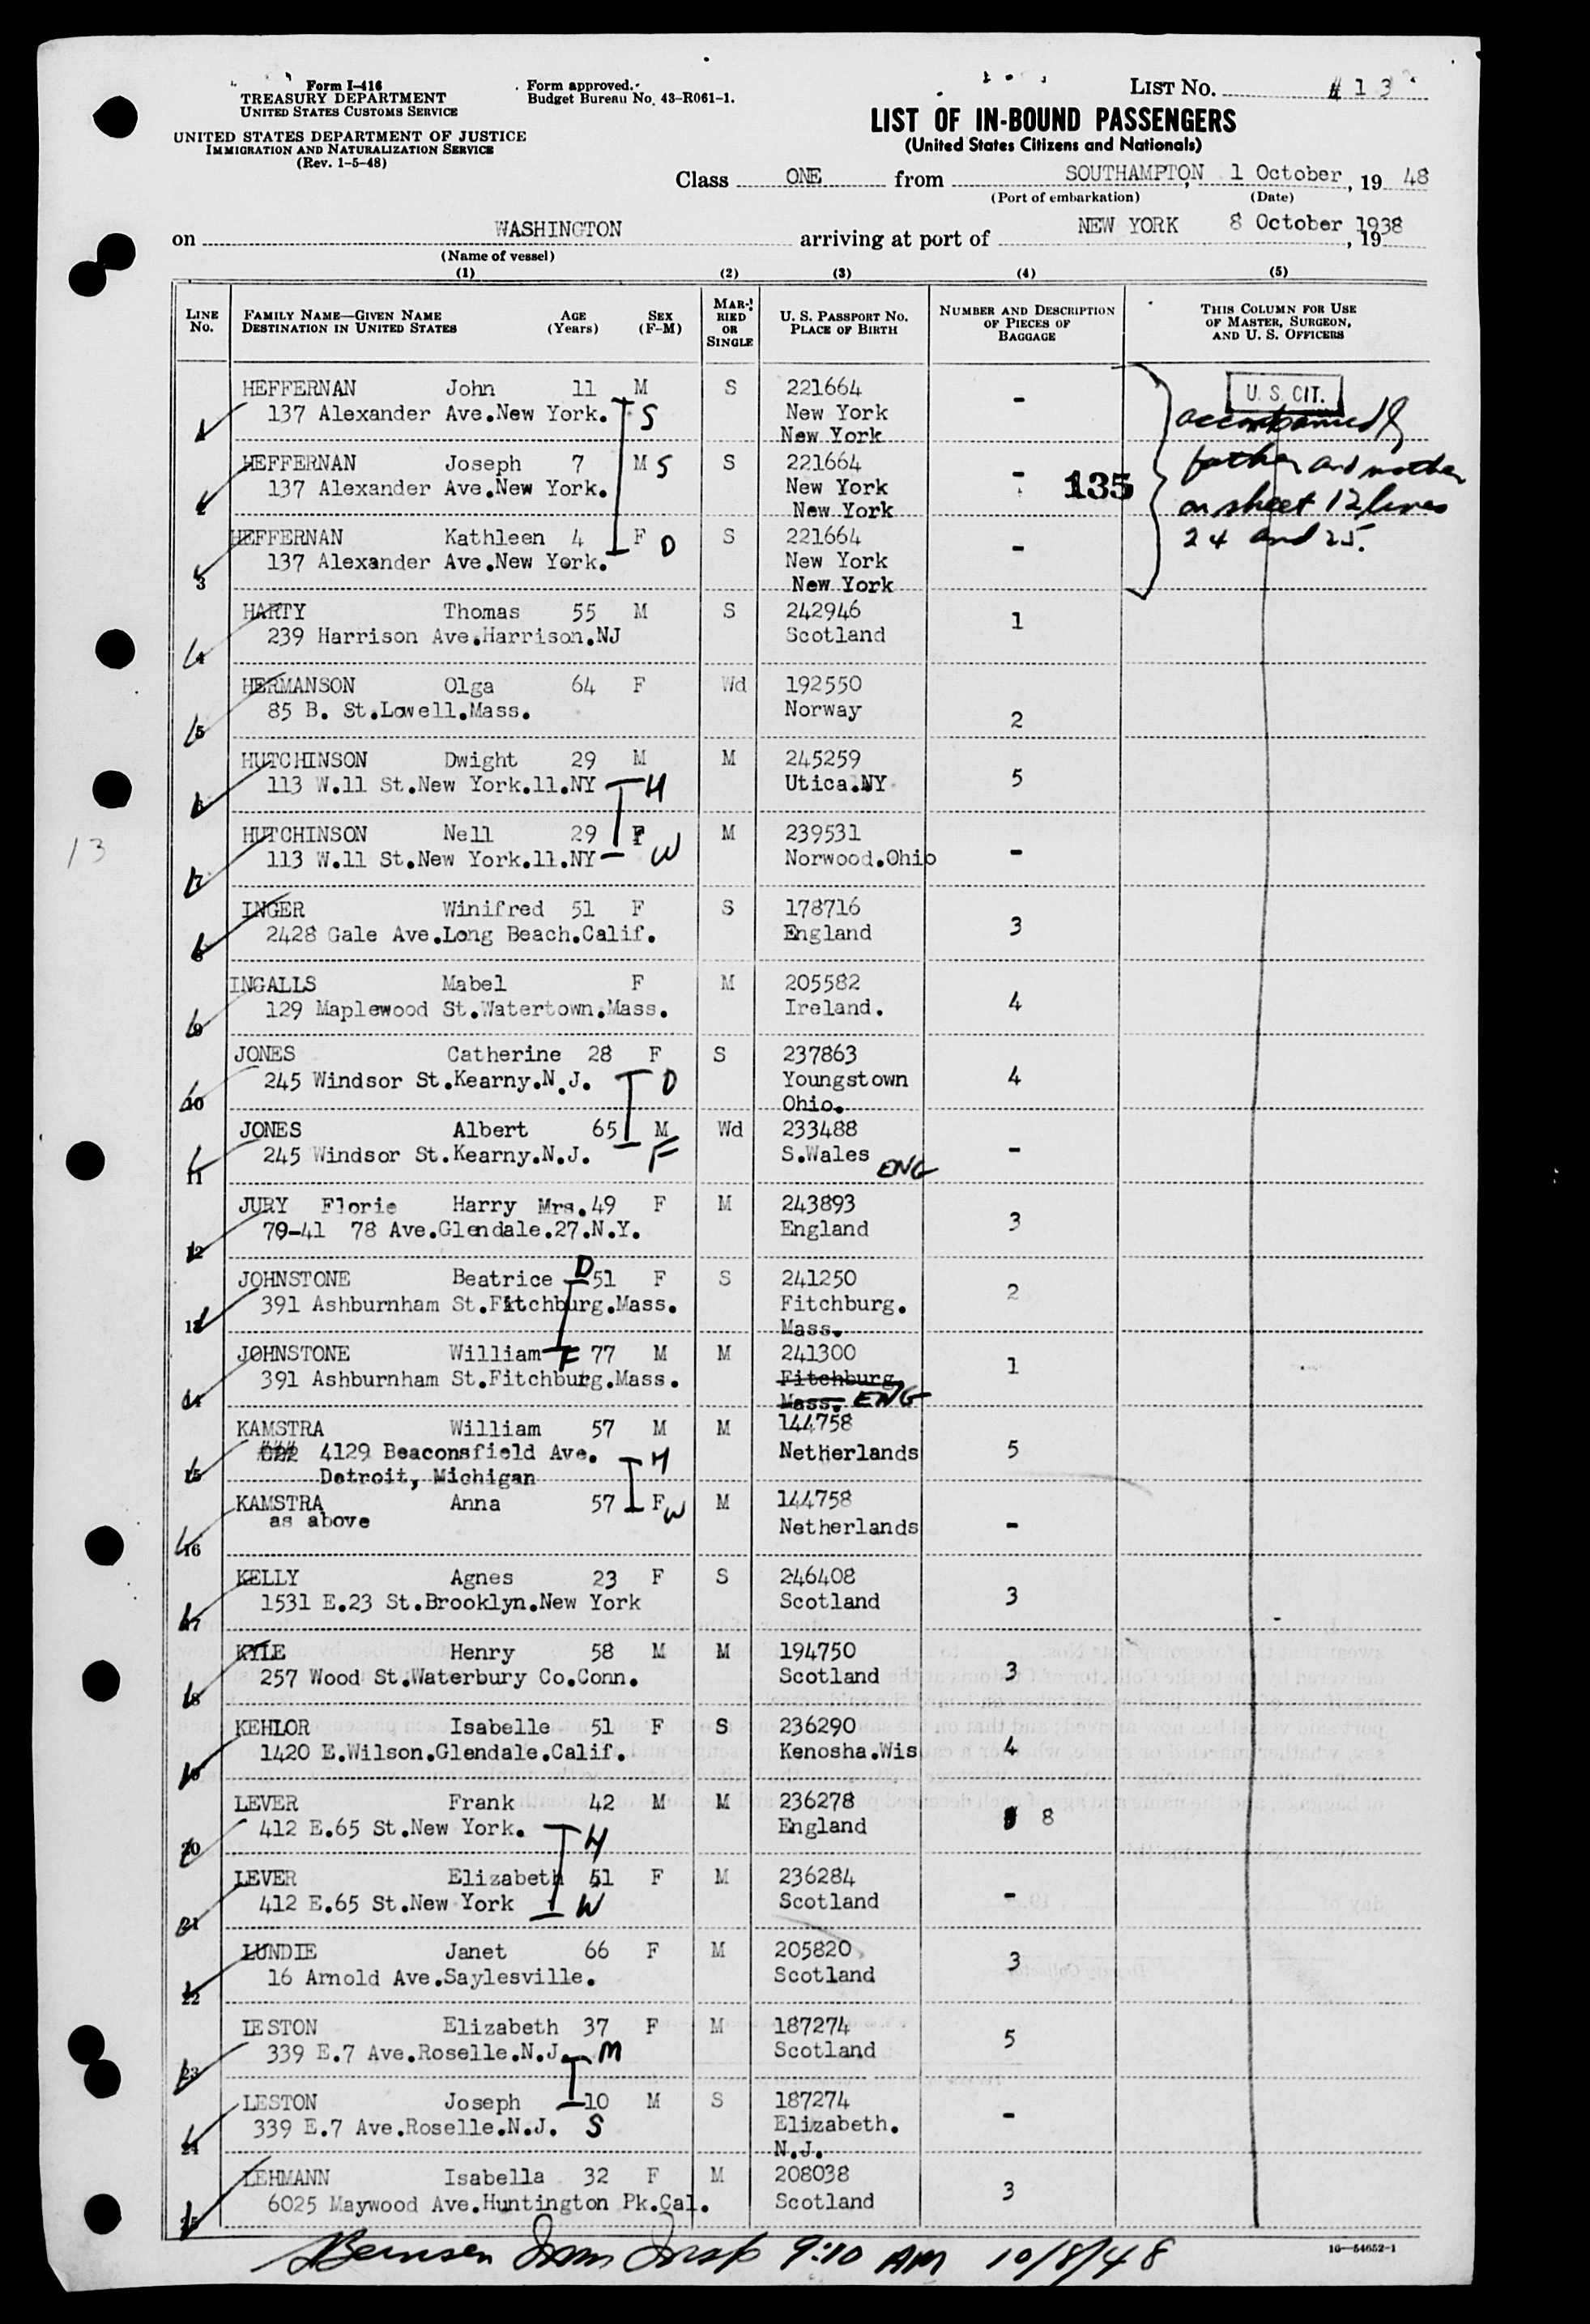 Form I-416
TREASURY DEPARTMENT
UNITED STATES CUSTOMS SERVICE
UNITED STATES DEPARTMENT OF JUSTICE
IMMIGRATION AND NATURALIZATION SERVICE
(Rev. 1-5-48)
Form approved.
Budget Bureau No. 43-R061-1.
LIST No. #13
LIST OF IN-BOUND PASSENGERS
(United States Citizens and Nationals)
Class ONE from SOUTHAMPTON, 1 October, 19 48
(Port of embarkation) (Date)
on WASHINGTON arriving at port of NEW YORK 8 October 1938, 19
(Name of vessel)
(1) (2) (3) (4) (5)
LINE No.
FAMILY NAME—GIVEN NAME
DESTINATION IN UNITED STATES
AGE (Years)
SEX (F-M)
MARRIED OR SINGLE
U. S. PASSPORT NO.
PLACE OF BIRTH
NUMBER AND DESCRIPTION OF PIECES OF BAGGAGE
THIS COLUMN FOR USE OF MASTER, SURGEON, AND U. S. OFFICERS
HEFFERNAN John 11 M S 221664 - U. S. CIT.
137 Alexander Ave.New York. S New York accompanied by
New York
HEFFERNAN Joseph 7 M S S 221664 - father and mother
137 Alexander Ave.New York. New York 135 on sheet 12 lines
2 New York
HEFFERNAN Kathleen 4 F D S 221664 - 24 and 25.
137 Alexander Ave.New York. New York
3 New York
HARTY Thomas 55 M S 242946 1
239 Harrison Ave.Harrison.NJ Scotland
4
HERMANSON Olga 64 F Wd 192550
85 B. St.Lowell.Mass. Norway 2
5
HUTCHINSON Dwight 29 M M 245259 5
113 W.11 St.New York.11.NY H Utica.NY
6
HUTCHINSON Nell 29 F M 239531 -
113 W.11 St.New York.11.NY W Norwood.Ohio
7
INGER Winifred 51 F S 178716 3
2428 Gale Ave.Long Beach.Calif. England
8
INGALLS Mabel F M 205582 4
129 Maplewood St.Watertown.Mass. Ireland.
9
JONES Catherine 28 F S 237863 4
245 Windsor St.Kearny.N.J. D Youngstown
10 Ohio.
JONES Albert 65 M Wd 233488 -
245 Windsor St.Kearny.N.J. F S.Wales ENG
11
JURY Florie Harry Mrs. 49 F M 243893 3
70-41 78 Ave.Glendale.27.N.Y. England
12
JOHNSTONE Beatrice D 51 F S 241250 2
391 Ashburnham St.Fitchburg.Mass. Fitchburg.
13 Mass.
JOHNSTONE William F 77 M M 241300 1
391 Ashburnham St.Fitchburg.Mass. Fitchburg
14 Mass. ENG
KAMSTRA William 57 M M 144758
4129 Beaconsfield Ave. H Netherlands 5
15 Detroit, Michigan
KAMSTRA Anna 57 F W M 144758
as above Netherlands -
16
KELLY Agnes 23 F S 246408 3
1531 E.23 St.Brooklyn.New York Scotland
17
KYLE Henry 58 M M 194750 3
257 Wood St.Waterbury Co.Conn. Scotland
18
KEHLOR Isabelle 51 F S 236290 4
1420 E.Wilson.Glendale.Calif. Kenosha.Wis
19
LEVER Frank 42 M M 236278 8
412 E.65 St.New York. H England
20
LEVER Elizabeth 51 F M 236284 -
412 E.65 St.New York W Scotland
21
LUNDIE Janet 66 F M 205820 3
16 Arnold Ave.Saylesville. Scotland
22
IESTON Elizabeth 37 F M 187274 5
339 E.7 Ave.Roselle.N.J. M Scotland
23
LESTON Joseph 10 M S 187274 -
339 E.7 Ave.Roselle.N.J. S Elizabeth.
24 N.J.
LEHMANN Isabella 32 F M 208038 3
6025 Maywood Ave.Huntington Pk.Cal. Scotland
25
13
Imm Insp 9:10 AM 10/8/48
16—54652-1